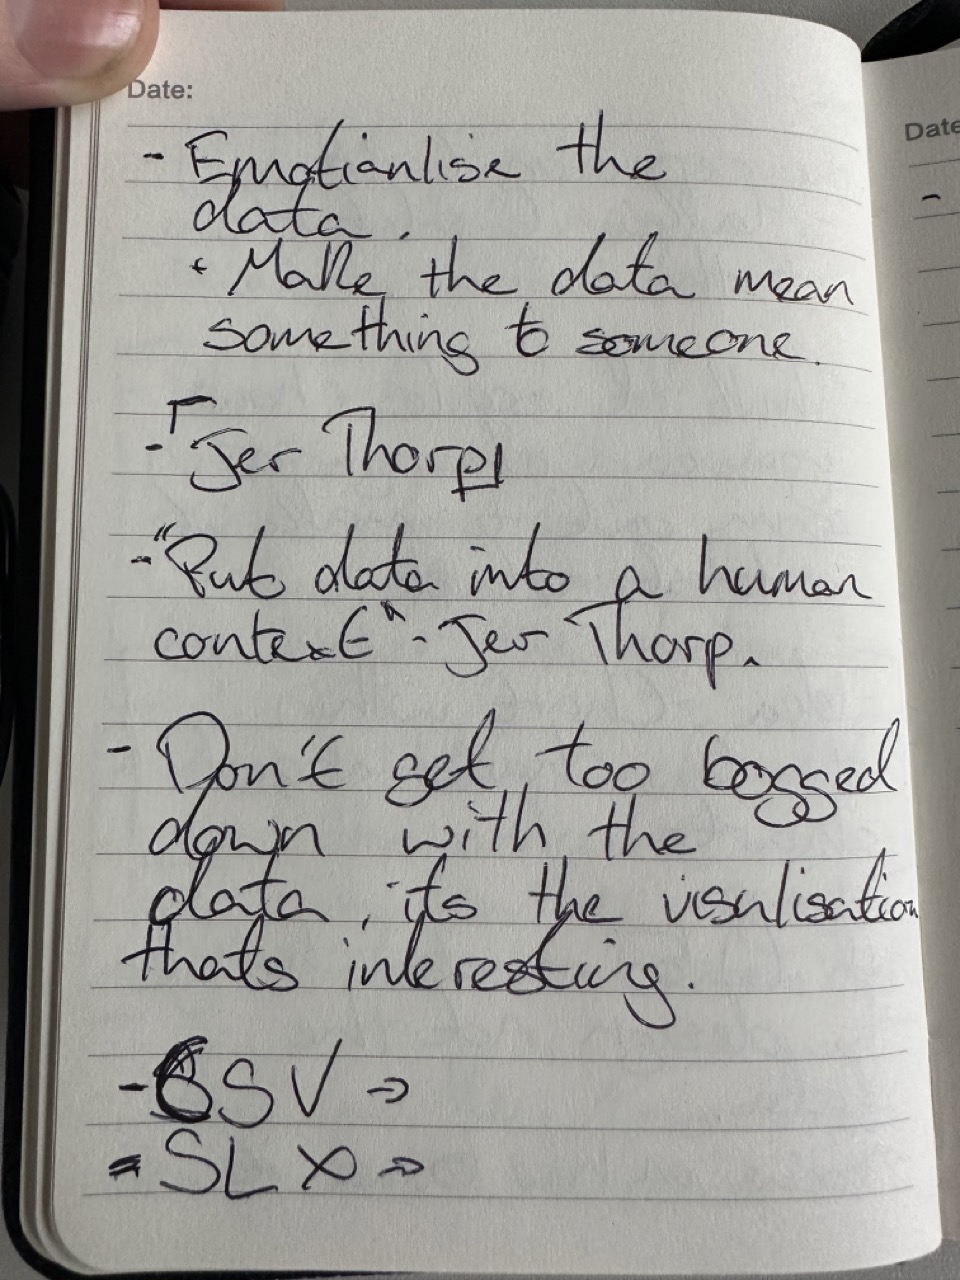 Date:
- Emotianlise the
data.
• Make the data mean
something to someone.
- Jer Thorp
- "Put data into a human
context" - Jer Thorp.
- Don't get too bogged
down with the
data, its the visulisation
thats interesting.
- CSV →
- SLX →
Date
-